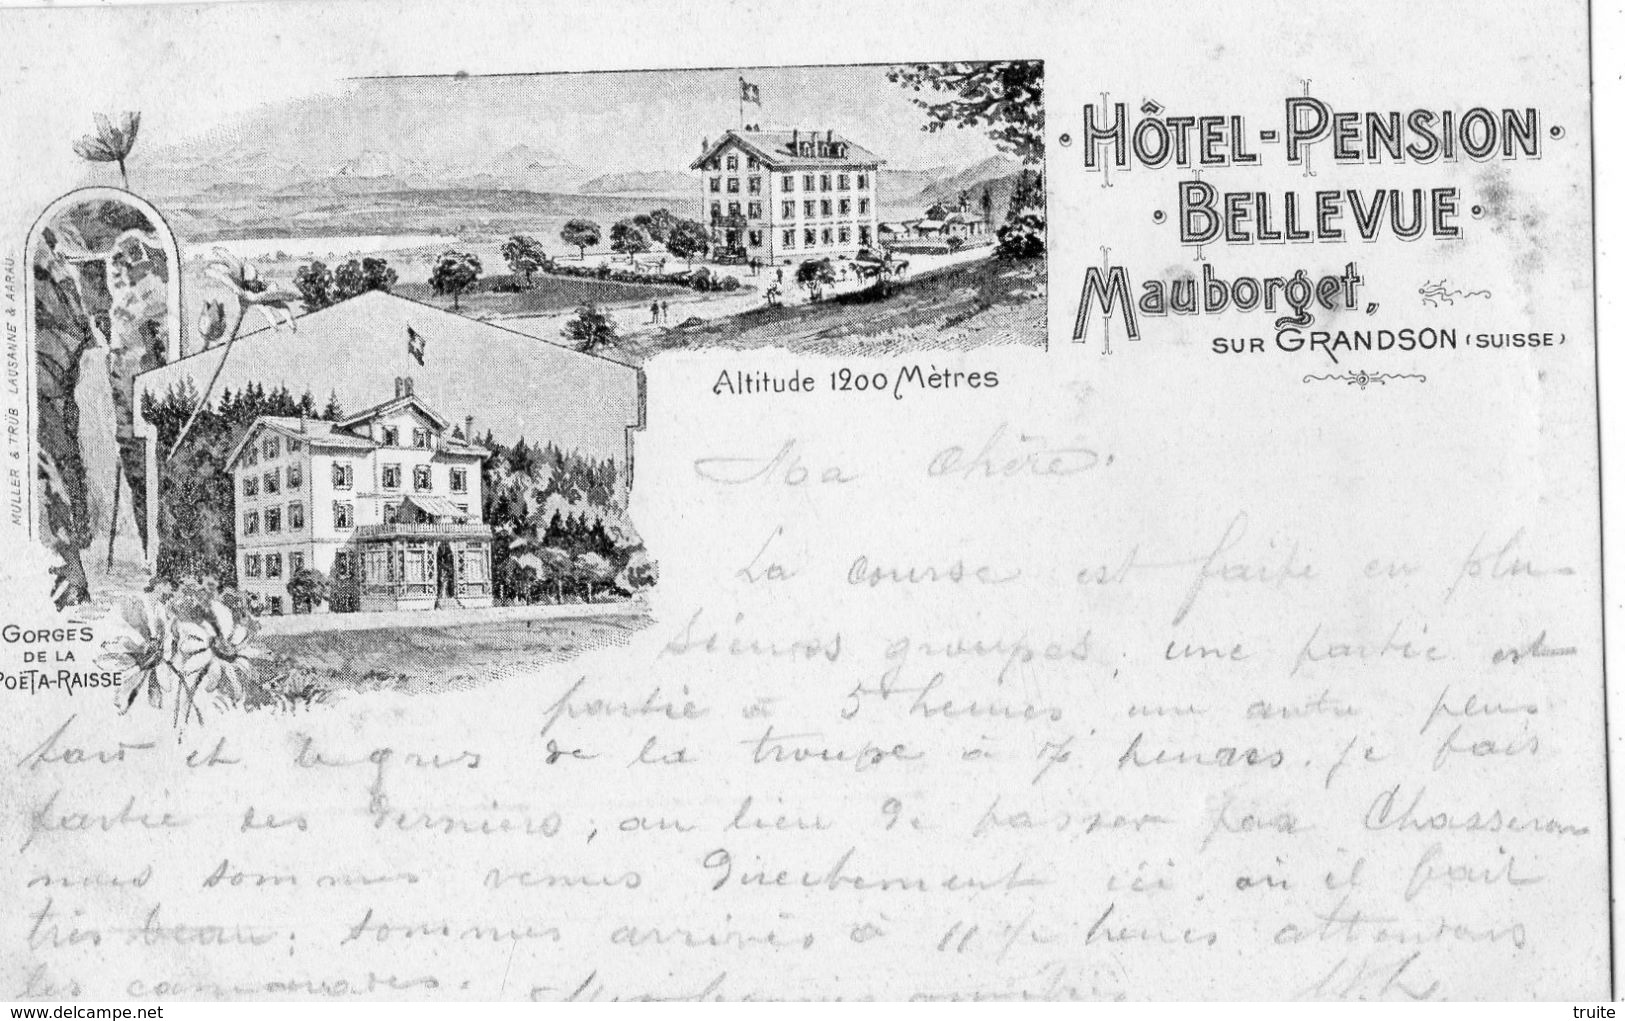 HÔTEL-PENSION
BELLEVUE
Mauborget,
SUR GRANDSON (SUISSE)
Altitude 1200 Mètres
MULLER & TRÜB LAUSANNE & AARAU.
GORGES
DE LA
POËTA-RAISSE
Ma chère.
La course est faite en plu-
sieurs groupes, une partie est
partie à 5 heures, une autre plus
tard et le gros de la troupe à 7 heures. Je fais
partie des derniers; au lieu de passer par Chasseron
nous sommes venus directement ici, où il fait
très beau; sommes arrivés à 11 ½ heures attendons
les camarades.
delcampe.net
truite